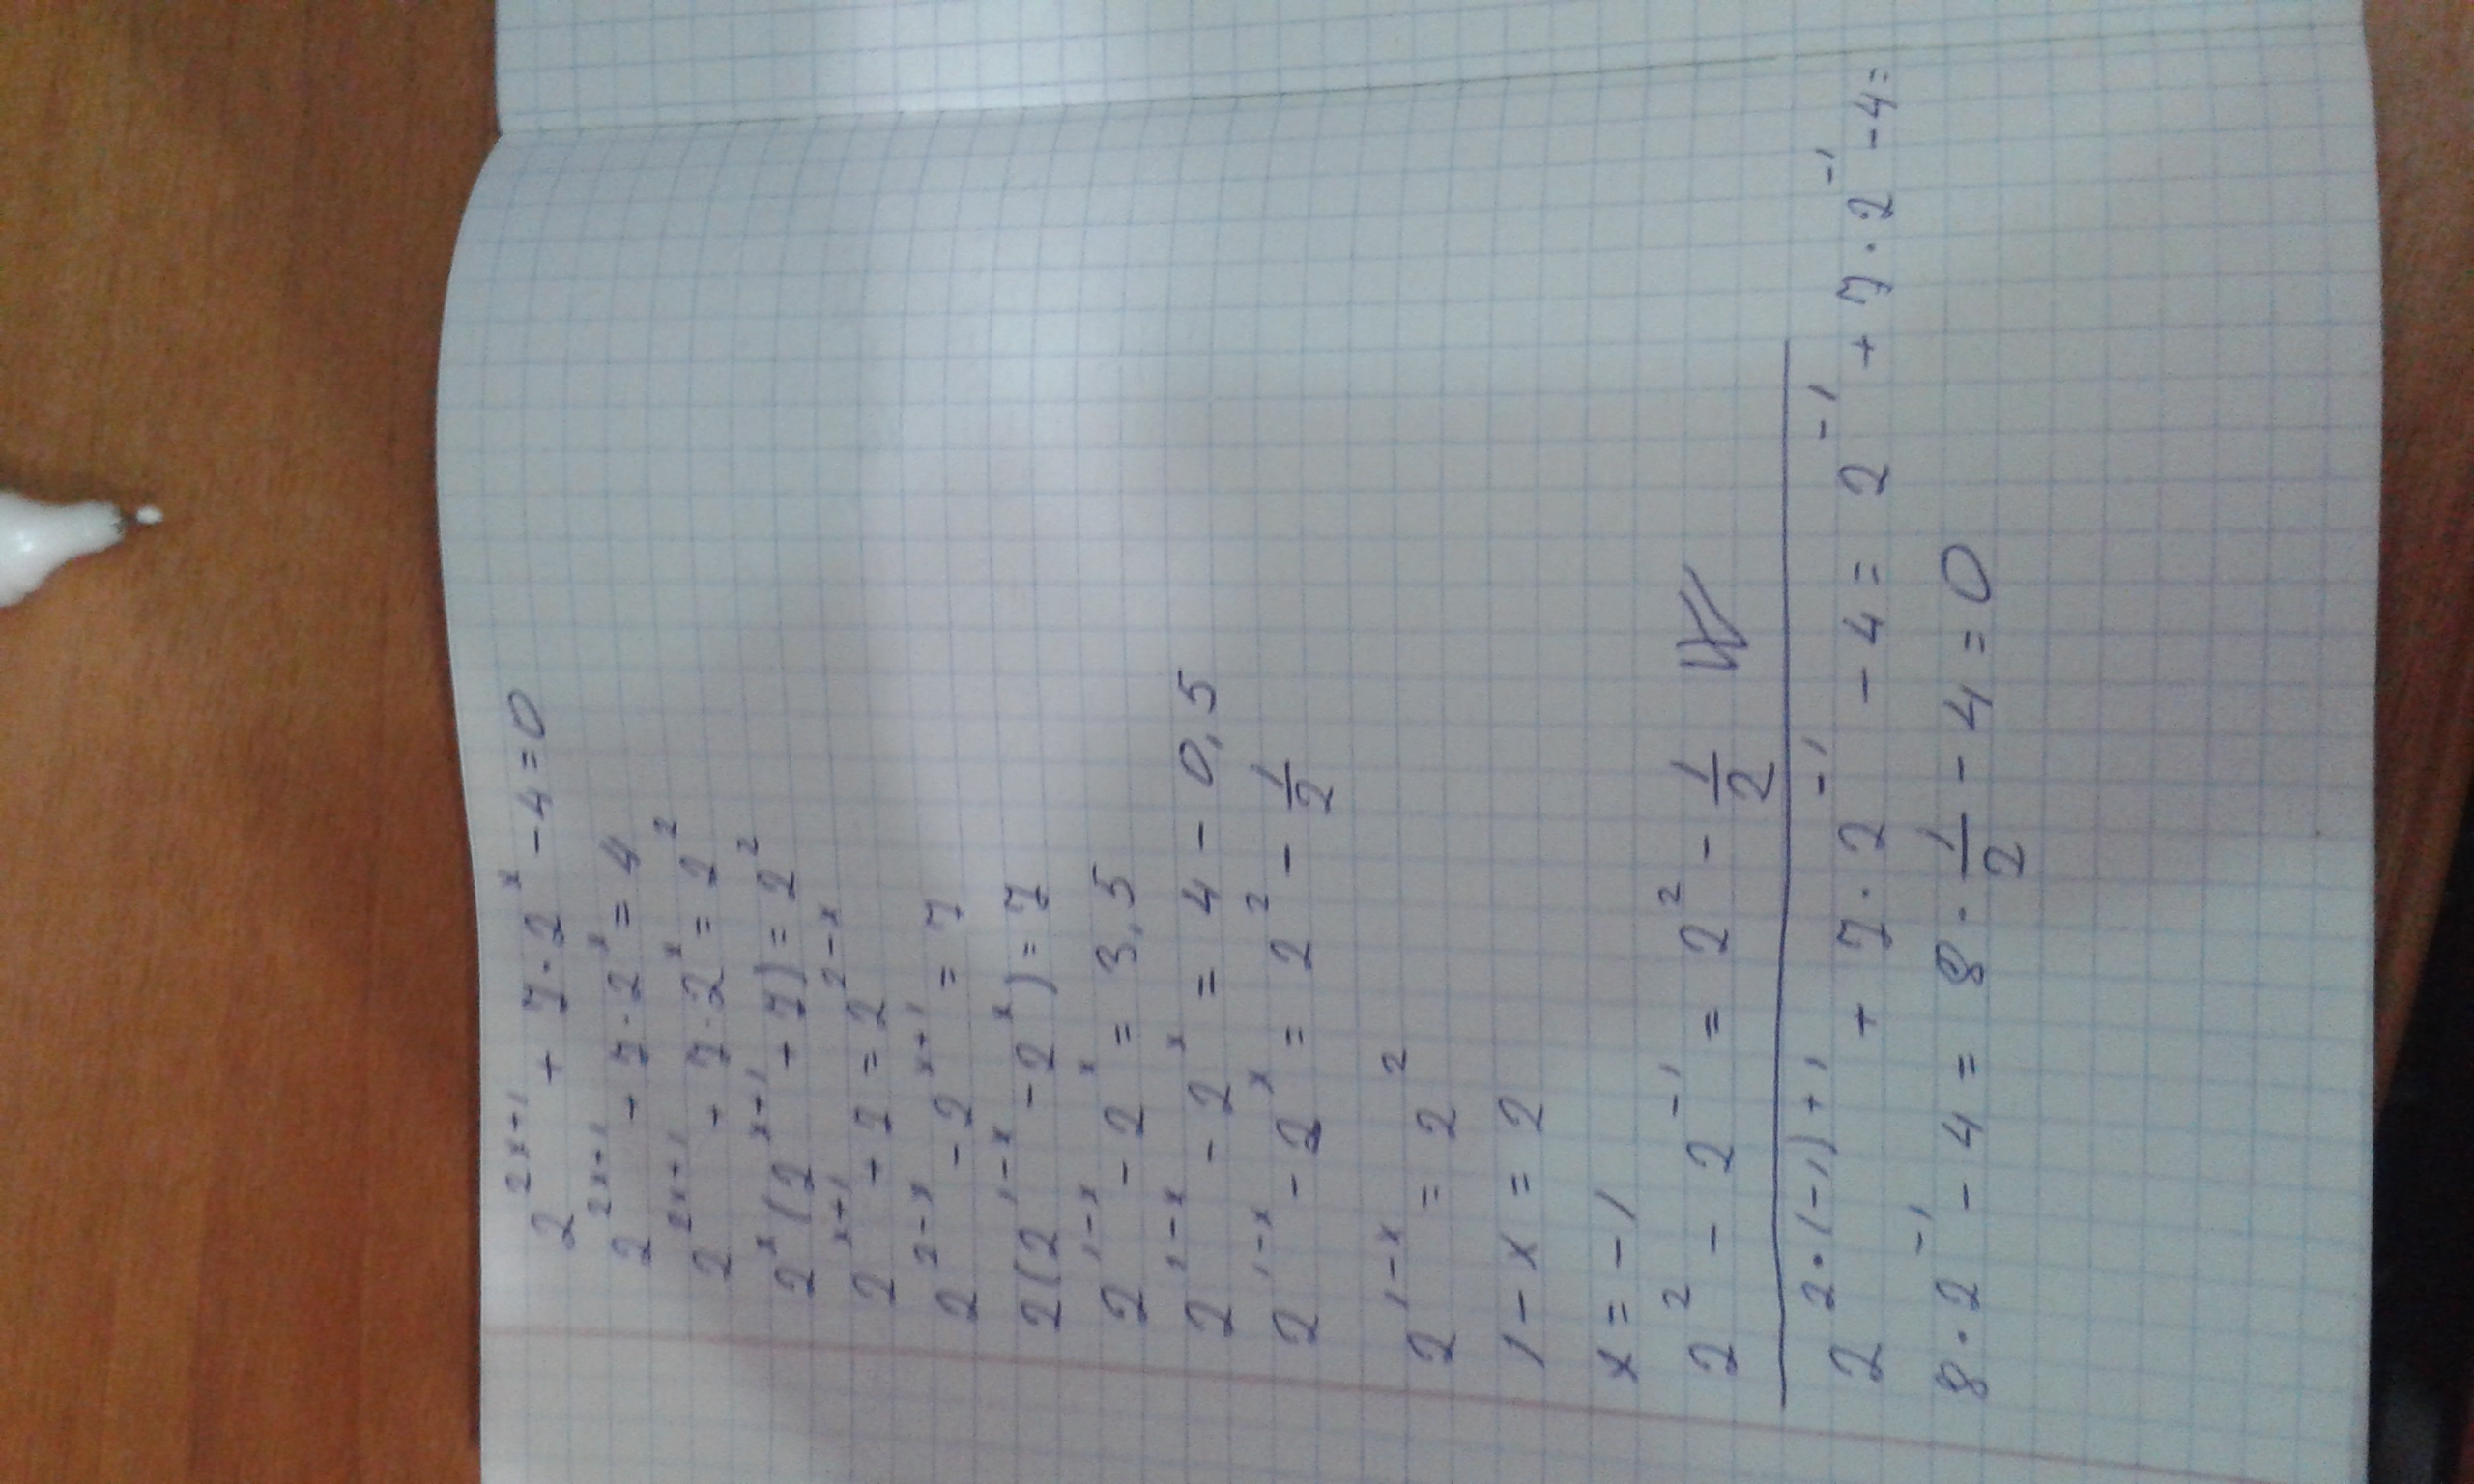 2^{2x+1} + 7·2^x - 4 = 0
2^{2x+1} + 7·2^x = 4
2^{2x+1} + 7·2^x = 2^2
2^x(2^{x+1} + 7) = 2^2
2^{x+1} + 7 = 2^{2-x}
2^{2-x} - 2^{x+1} = 7
2(2^{1-x} - 2^x) = 7
2^{1-x} - 2^x = 3,5
2^{1-x} - 2^x = 4 - 0,5
2^{1-x} - 2^x = 2^2 - \frac{1}{2}
2^{1-x} = 2^2
1 - x = 2
x = -1
2^2 - 2^{-1} = 2^2 - \frac{1}{2}
2^{2·(-1)+1} + 7·2^{-1} - 4 = 2^{-1} + 7·2^{-1} - 4 =
8·2^{-1} - 4 = 8·\frac{1}{2} - 4 = 0